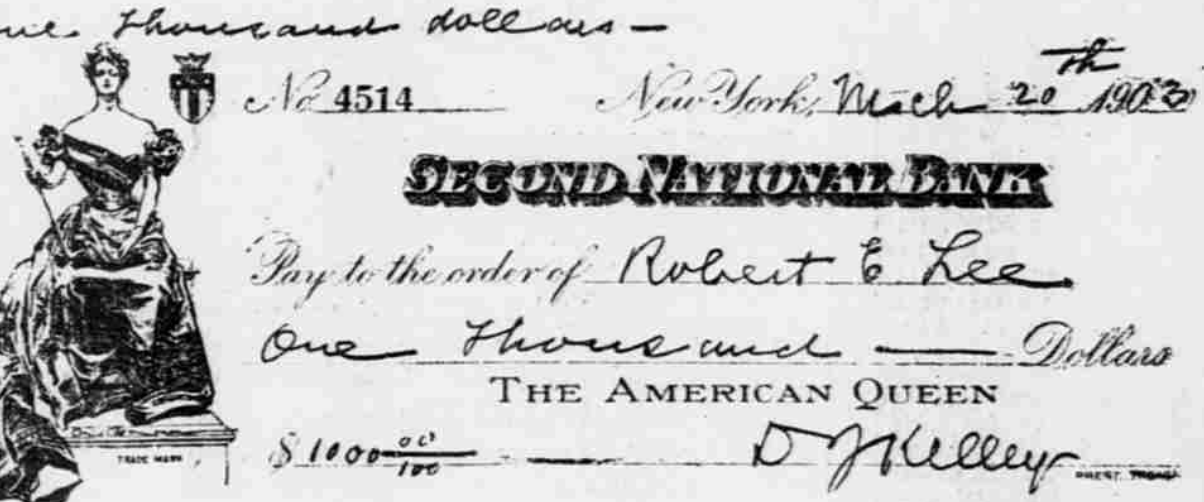 one thousand dollars —
No 4514 New York, Mach 20th 1903
SECOND NATIONAL BANK
Pay to the order of Robert E Lee
One Thousand — Dollars
THE AMERICAN QUEEN
$ 1000 00/100 — D J Kelley
TRADE MARK PREST. TREAS.